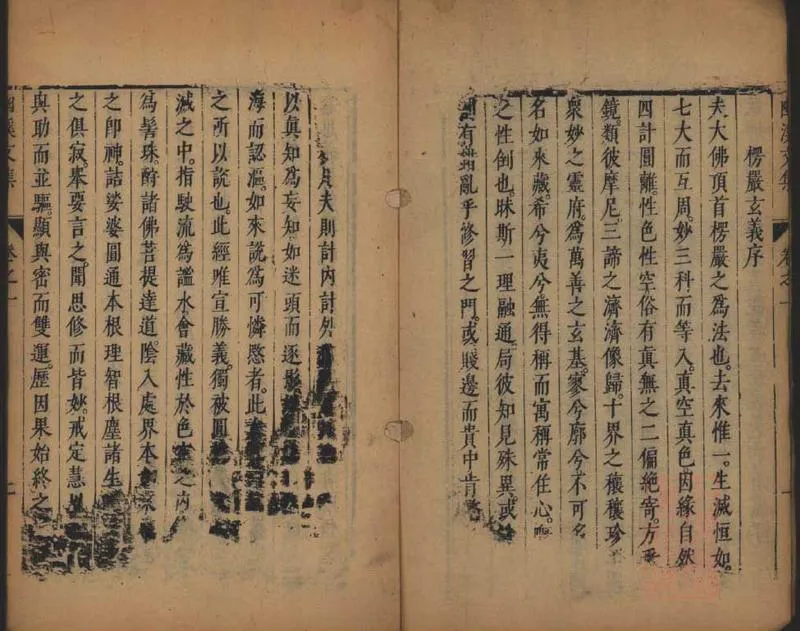 楞嚴玄義序
夫大佛頂首楞嚴之為法也。去來惟一。生滅恒如。
七大而互周。妙三科而等入。真空真色。因緣自然
四計圓離。性色性空。俗有真無之二偏絕寄。方
鏡。類彼摩尼。三諦之濟濟像歸。十界之穰穰珍
衆妙之靈府。為萬善之玄基。寥兮廓兮不可名
名如來藏。希兮夷兮無得稱而寓稱常住心。
之性倒也。昧斯一理融通。局彼知見殊異。或
有 亂乎修習之門。或賤邊而貴中。肯
夫則計內計外
以真知為妄知。如迷頭而逐影
海而認漚。如來說為可憐愍者。此
之所以說也。此經唯宣勝義。獨被圓
滅之中。指駛流為謐水。會藏性於色 之內
為髻珠。酧諸佛菩提達道。陰入處界本
之即神。詰娑婆圓通本根。理智根塵諸生
之俱寂。舉要言之。聞思修而皆妙。戒定慧
與助而並驅。顯與密而雙運。歷因果始終之
幽溪文集
卷之一